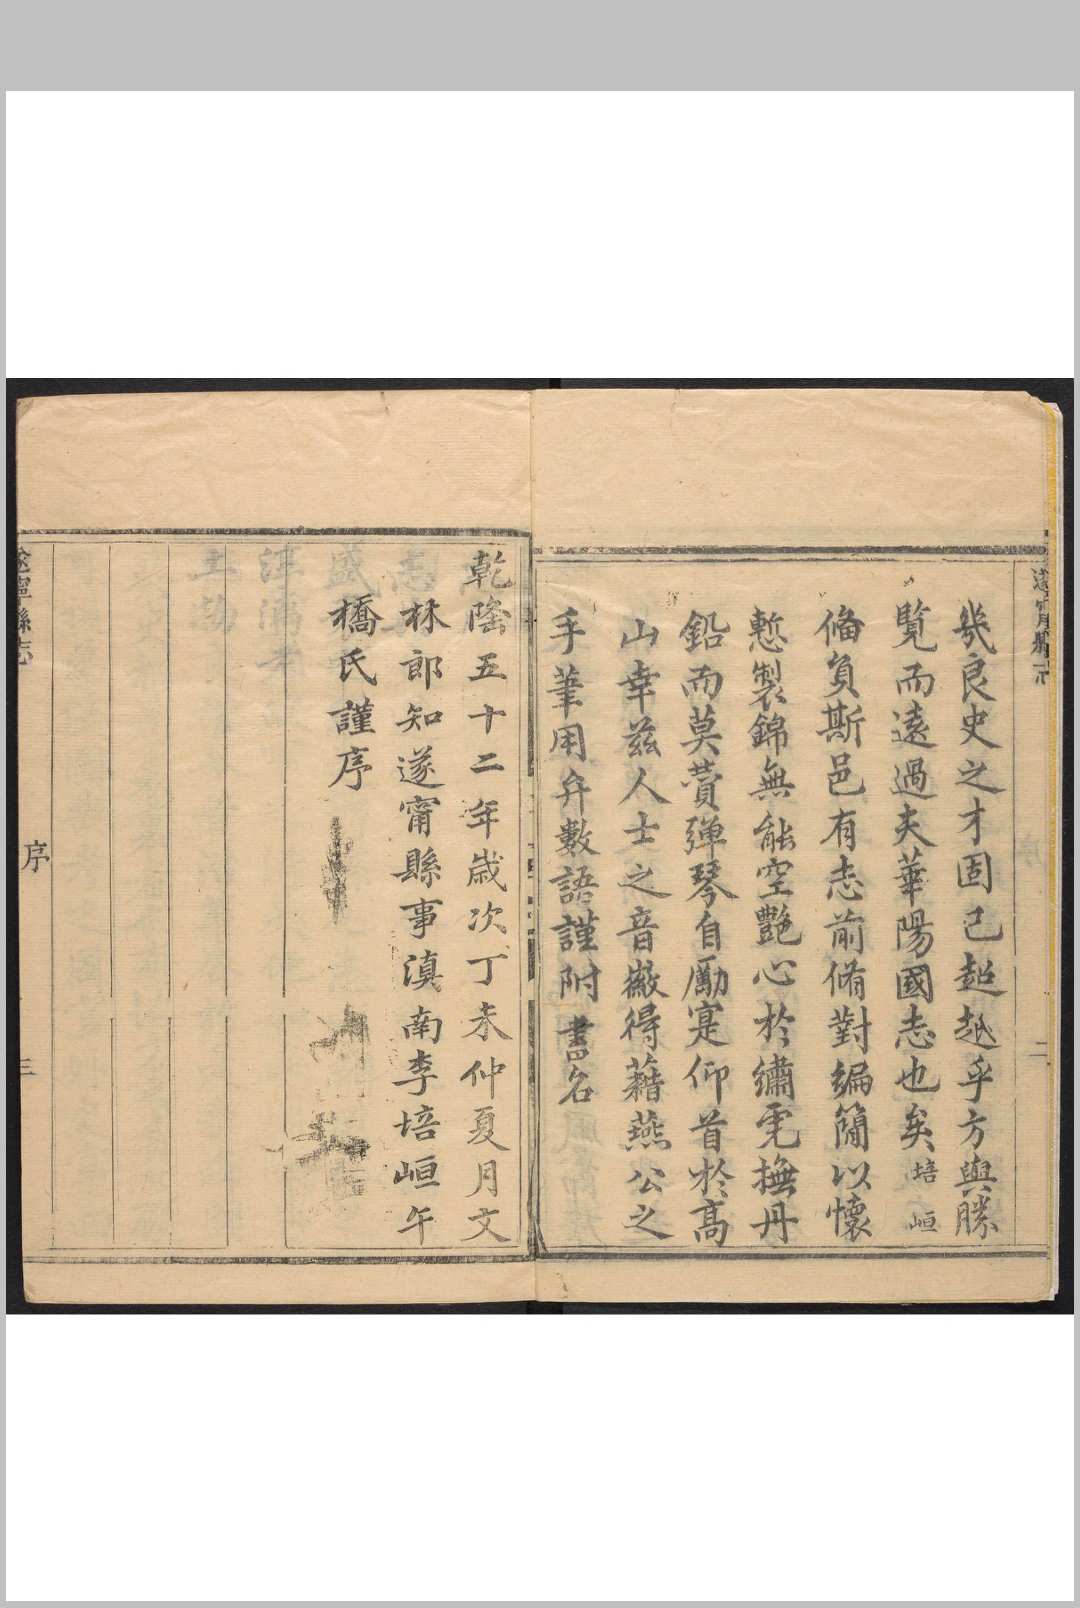 幾良史之才固已超越乎方輿勝
覽而遠過夫華陽國志也矣培峘
備負斯邑有志前脩對編簡以懷
慙製錦無能空艷心於繡虎撫丹
鉛而莫賛彈琴自勵寔仰首於高
山幸茲人士之音徽得藉燕公之
手筆用弁數語謹附書名
乾隆五十二年歲次丁未仲夏月文
林郎知遂甯縣事滇南李培峘午
橋氏謹序
遂寧縣志
序
三